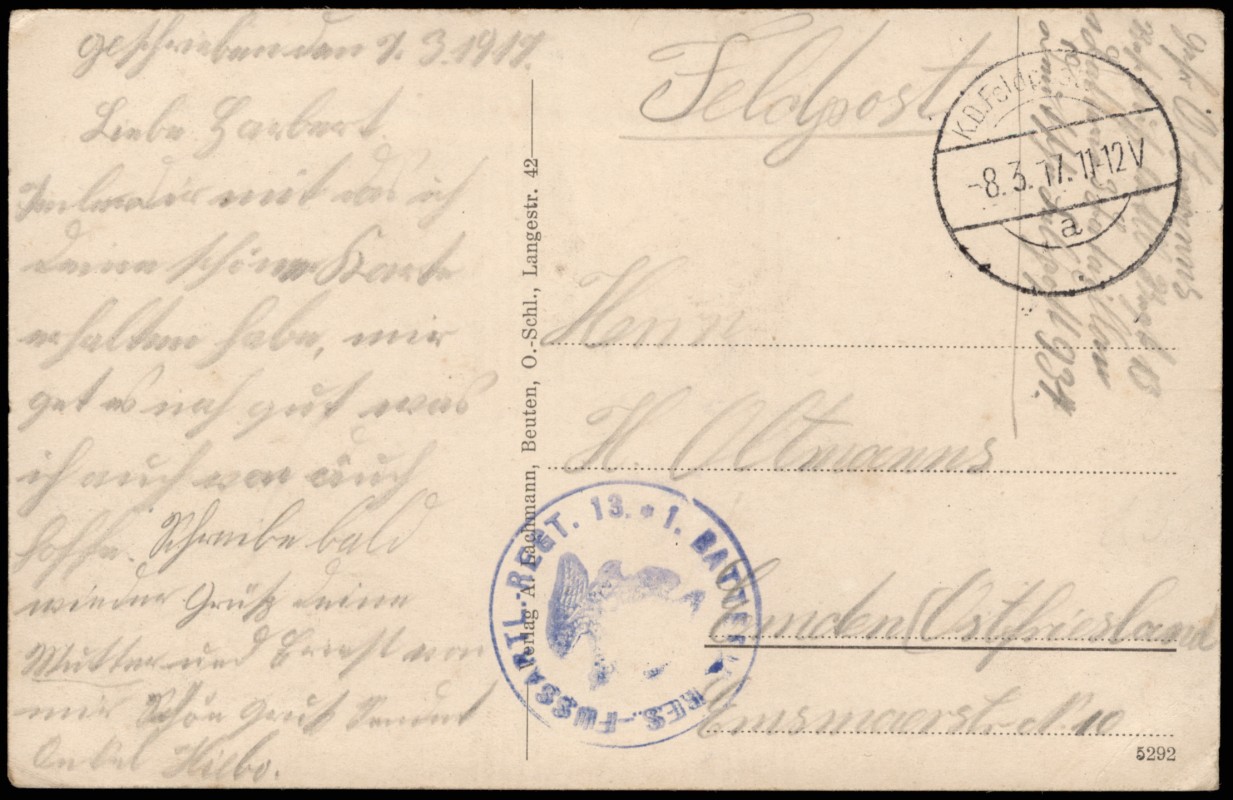 geschrieben den 7.3.1917.
Liebe Harbert
mit das ich
deine schöne Karte
erhalten habe, mir
get es noch gut was
ich auch von auch
hoffe. Schreibe bald
wieder Grüß deine
Mutter und Ernst von
mir Schön Gruß Sendet
Onkel Hilbo.
Verlag A. Bachmann, Beuten, O.-Schl., Langestr. 42
Feldpost
K.D. Feldpost
-8.3.17.11-12V
a
Herrn
H. Oltmanns
Emden (Ostfriesland
Emsmauerstr. No 10
RES.-FUSSARTL.-REGT. 13. * 1. BATTERIE
5292